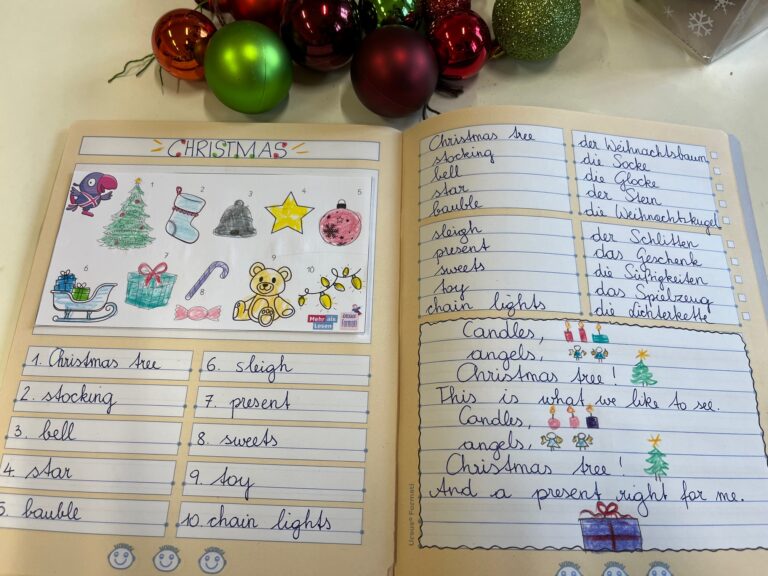 CHRISTMAS
1
2
3
4
5
6
7
8
9
10
Mehr als
Lesen
URSUS
Formati
1. Christmas tree
2. stocking
3. bell
4. star
5. bauble
6. sleigh
7. present
8. sweets
9. toy
10. chain lights
Christmas tree
stocking
bell
star
bauble
der Weihnachtsbaum
die Socke
die Glocke
der Stern
die Weihnachtskugel
sleigh
present
sweets
toy
chain lights
der Schlitten
das Geschenk
die Süßigkeiten
das Spielzeug
die Lichterkette
Candles,
angels,
Christmas tree!
This is what we like to see.
Candles,
angels,
Christmas tree!
And a present right for me.
Ursus® Formati